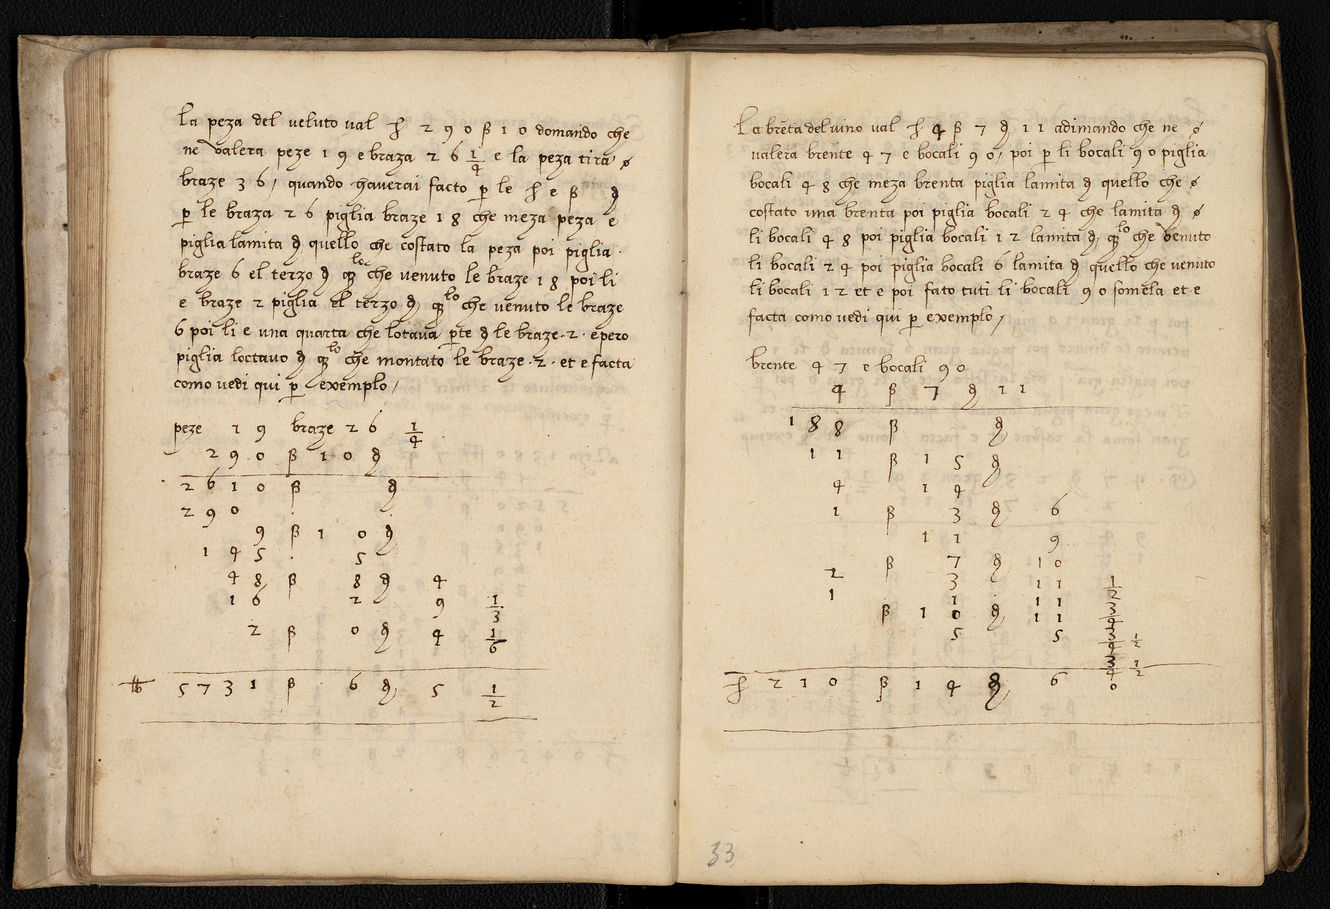 La peza del veluto val ħ 290 ß 10 domando che
ne valera peze 19 e braza 26 1/4 e la peza tira
braze 36, quando haverai facto p̱ le ħ e ß ꝺ
p̱ le braza 26 piglia braze 18 che meza peza e
piglia lamita ꝺ quello che costato la peza poi piglia
braze 6 el terzo ꝺ qlo che venuto le braze 18 poi li
e braze 2 piglia el terzo ꝺ qlo che venuto le braze
6 poi li e una quarta che lotava p̱te ꝺ le braze · 2 · e pero
piglia loctavo ꝺ qlo che montato le braze · 2 · et e facta
como vedi qui p̱ exemplo,
peze 19 braze 26 1/4
290 ß 10 ꝺ
2610 ß ꝺ
290
9 ß 10 ꝺ
145 5
48 ß 8 ꝺ 4
16 2 9 1/3
2 ß 0 ꝺ 4 1/6
5731 ß 6 ꝺ 5 1/2
La brẽta del vino val ħ 4 ß 7 ꝺ 11 adimando che ne
valera brente 47 e bocali 90, poi p̱ li bocali 90 piglia
bocali 48 che meza brenta piglia lamita ꝺ quello che
costato una brenta poi piglia bocali 24 che lamita ꝺ
li bocali 48 poi piglia bocali 12 lamita ꝺ qlo che venuto
li bocali 24 poi piglia bocali 6 lamita ꝺ quello che venuto
li bocali 12 et e poi fato tuti li bocali 90 somela et e
facta como vedi qui p̱ exemplo,
brente 47 e bocali 90
4 ß 7 ꝺ 11
188 ß ꝺ
11 ß 15 ꝺ
4 14
1 ß 3 ꝺ 6
11 9
2 ß 7 ꝺ 10
3 11 1/2
1 1 11 3/4
ß 10 ꝺ 11 3/4 1/2
5 5 3/4 1/2
ħ 210 ß 14 ꝺ 6 0
33